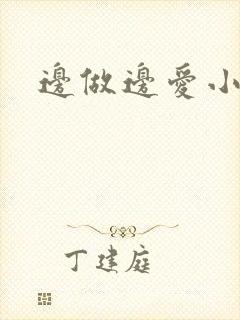 邊做邊愛小
丁建庭